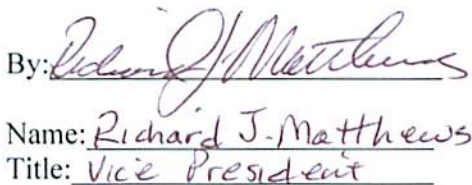 By: Richard J. Matthews
Name: Richard J. Matthews
Title: Vice President